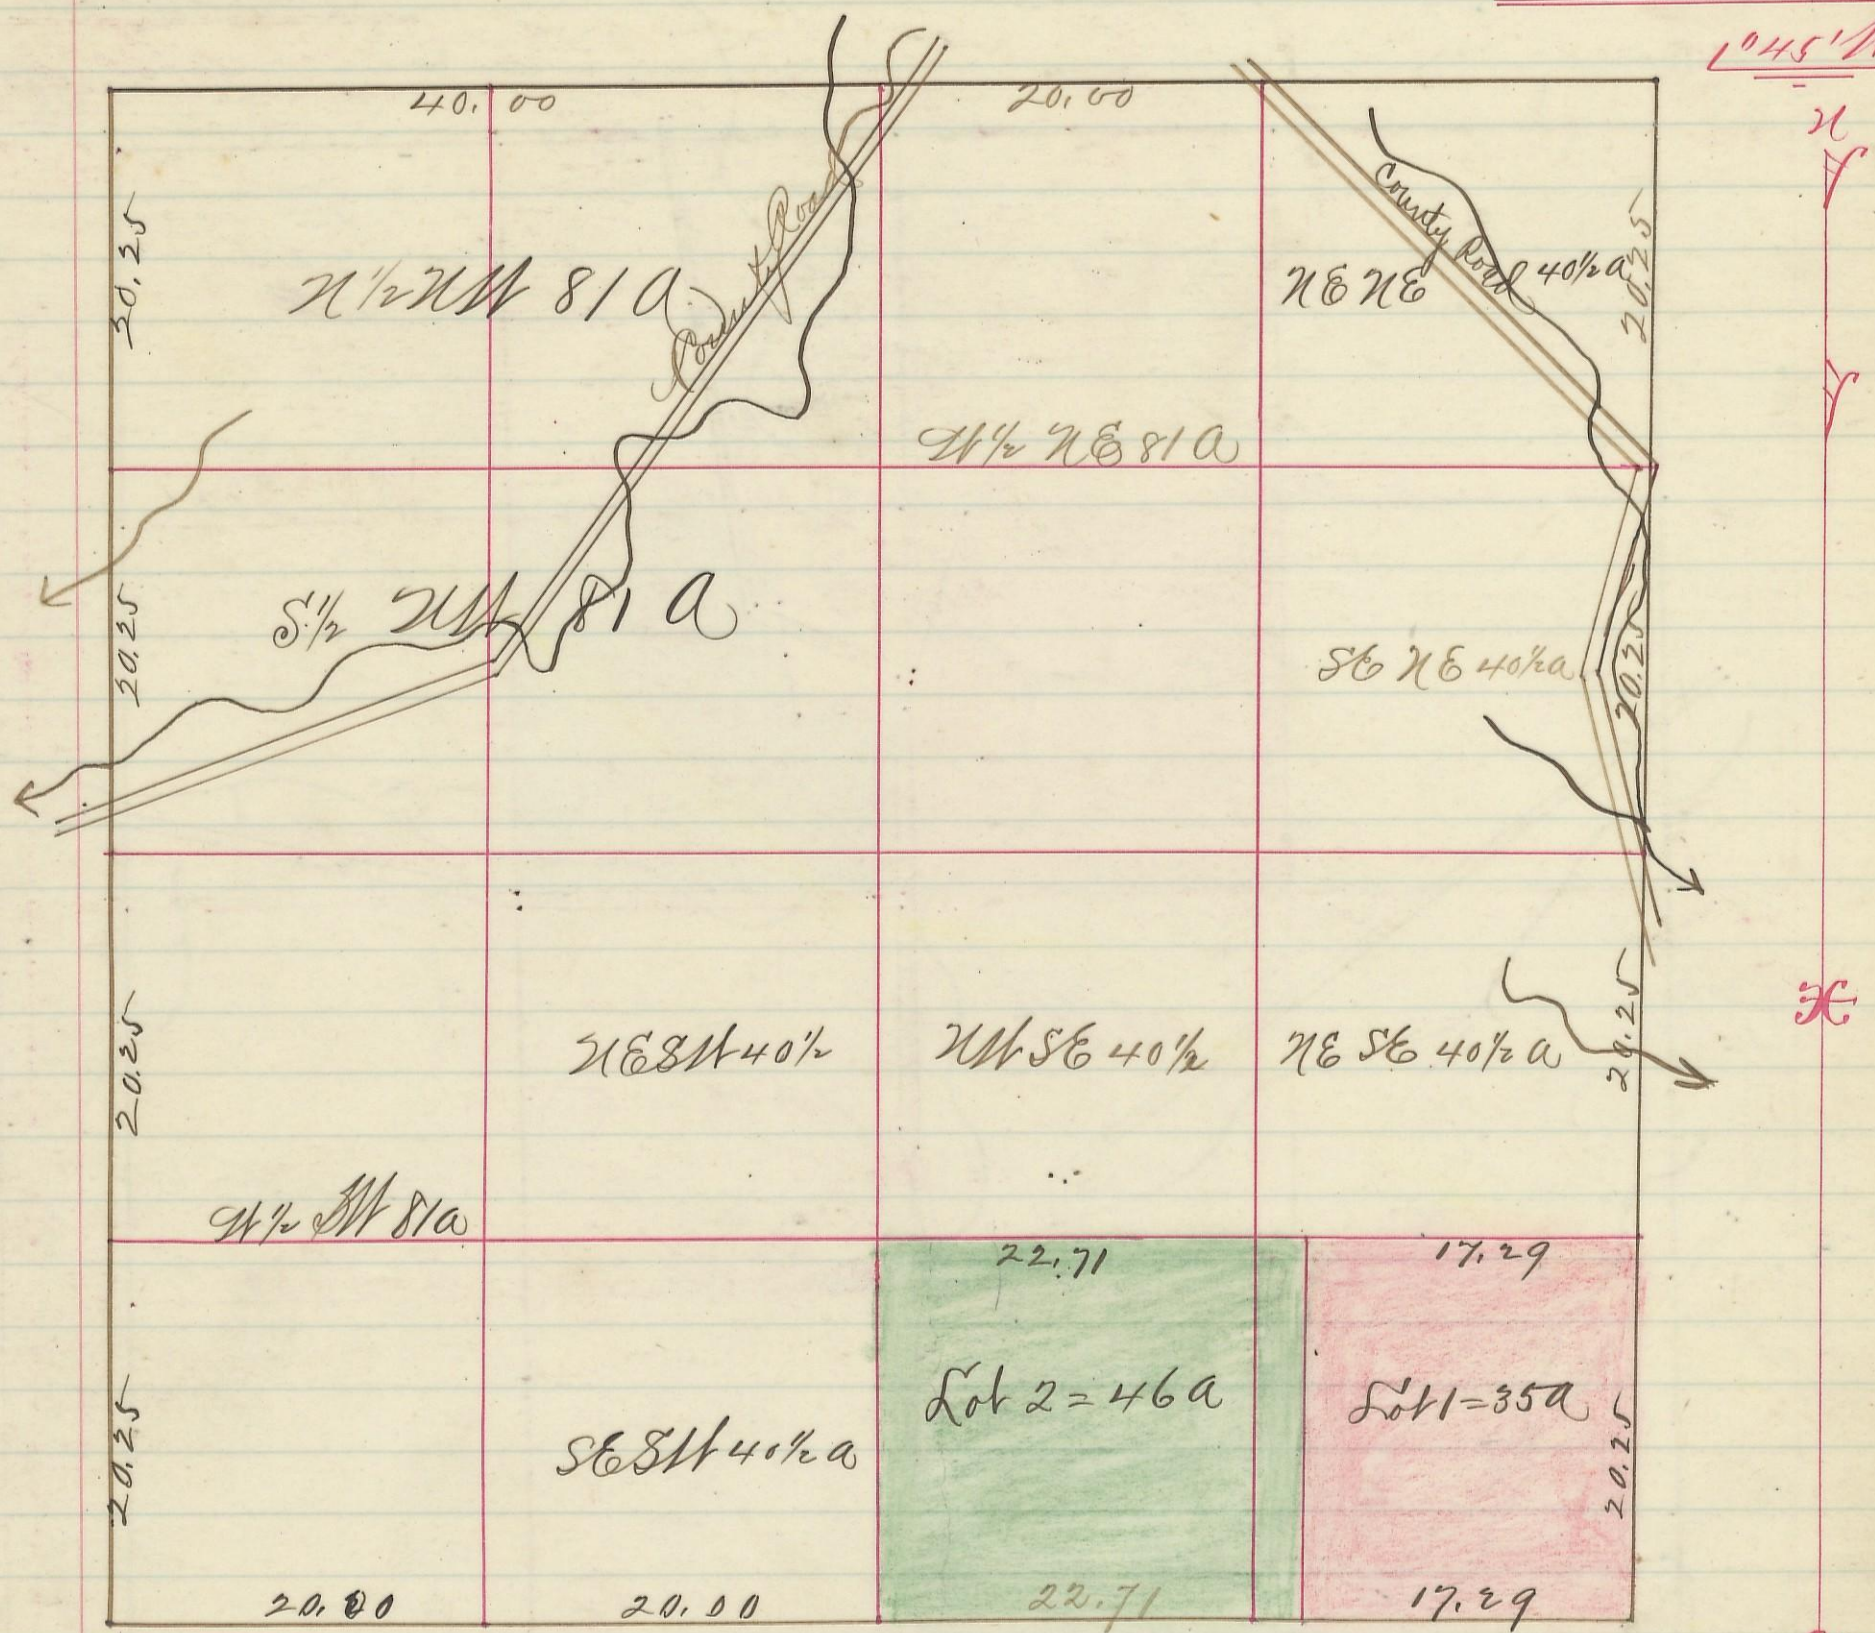 1°45'
N
40.00
20.00
20.25
N½ NW 81 A
County Road
County Road
NE NE 40½ a
20.25
W½ NE 81 A
20.25
S½ NW 81 A
SE NE 40½ a
20.25
20.25
NE SW 40½
NW SE 40½
NE SE 40½ a
20.25
W½ SW 81 a
22.71
17.29
20.25
SE SW 40½ a
Lot 2 = 46 a
Lot 1 = 35 a
20.25
20.00
20.00
22.71
17.29